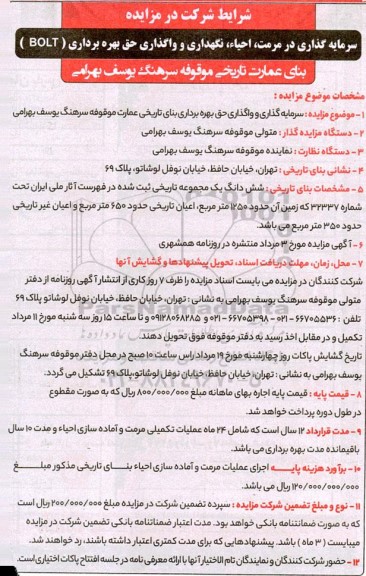 شرایط شرکت در مزایده
سرمایه گذاری در مرمت، احیاء، نگهداری و واگذاری حق بهره برداری ( BOLT )
بنای عمارت تاریخی موقوفه سرهنگ یوسف بهرامی
مشخصات موضوع مزایده :
۱- موضوع مزایده : سرمایه گذاری و واگذاری حق بهره برداری بنای تاریخی عمارت موقوفه سرهنگ یوسف بهرامی
۲- دستگاه مزایده گذار : متولی موقوفه سرهنگ یوسف بهرامی
۳- دستگاه نظارت : نماینده موقوفه سرهنگ یوسف بهرامی
۴- نشانی بنای تاریخی : تهران، خیابان حافظ، خیابان نوفل لوشاتو، پلاک ۶۹
۵- مشخصات بنای تاریخی : شش دانگ یک مجموعه تاریخی ثبت شده در فهرست آثار ملی ایران تحت
شماره ۳۲۳۳۷ که زمین آن حدود ۱۲۵۰ متر مربع، اعیان تاریخی حدود ۶۵۰ متر مربع و اعیان غیر تاریخی
حدود ۳۵۰ متر مربع می باشد.
۶- آگهی مزایده مورخ ۳ مرداد منتشره در روزنامه همشهری
۷- محل، زمان، مهلت دریافت اسناد، تحویل پیشنهادها و گشایش آنها
شرکت کنندگان در مزایده می بایست اسناد مزایده را ظرف ۷ روز کاری از انتشار آگهی روزنامه از دفتر
متولی موقوفه سرهنگ یوسف بهرامی به نشانی : تهران، خیابان حافظ، خیابان نوفل لوشاتو پلاک ۶۹
تلفن : ۶۶۷۰۵۵۳۶ - ۰۲۱ و ۶۶۷۰۵۳۹۸ - ۰۲۱ و ۰۹۱۲۸۰۶۸۲۸۵ و تا ساعت ۱۵ روز سه شنبه مورخ ۱۱ مرداد
تکمیل و در مقابل اخذ رسید به دفتر موقوفه فوق تحویل دهند.
تاریخ گشایش پاکات روز چهارشنبه مورخ ۱۹ مرداد راس ساعت ۱۰ صبح در محل دفتر موقوفه سرهنگ
یوسف بهرامی به نشانی : تهران، خیابان حافظ، خیابان نوفل لوشاتو، پلاک ۶۹ تشکیل می گردد.
۸- قیمت پایه : قیمت پایه اجاره بهای ماهانه مبلغ ۸۰۰/۰۰۰/۰۰۰ ریال که به صورت مقطوع
در طول دوره پرداخت خواهد شد.
۹- مدت قرارداد ۱۲ سال است که شامل ۲۴ ماه عملیات تکمیلی مرمت و آماده سازی احیاء و مدت ۱۰ سال
باقیمانده مدت بهره برداری می باشد.
۱۰- برآورد هزینه پایه اجرای عملیات مرمت و آماده سازی احیاء بنای تاریخی مذکور مبلغ
۱۲۰/۰۰۰/۰۰۰/۰۰۰ ریال می باشد.
۱۱- نوع و مبلغ تضمین شرکت در مزایده : سپرده تضمین شرکت در مزایده مبلغ ۲۰۰/۰۰۰/۰۰۰ ریال است
که به صورت ضمانتنامه بانکی خواهد بود. مدت اعتبار ضمانتنامه بانکی تضمین شرکت در مزایده
میبایست ( ۳ ماه ) باشد. پیشنهادهایی که برای مدت کمتری اعتبار داشته باشند، رد خواهند شد.
۱۲- حضور شرکت کنندگان و نمایندگان تام الاختیار آنها با ارائه معرفی نامه در جلسه افتتاح پاکات اختیاری است.